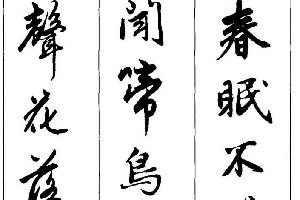 春眠不
聞啼鳥
聲花落